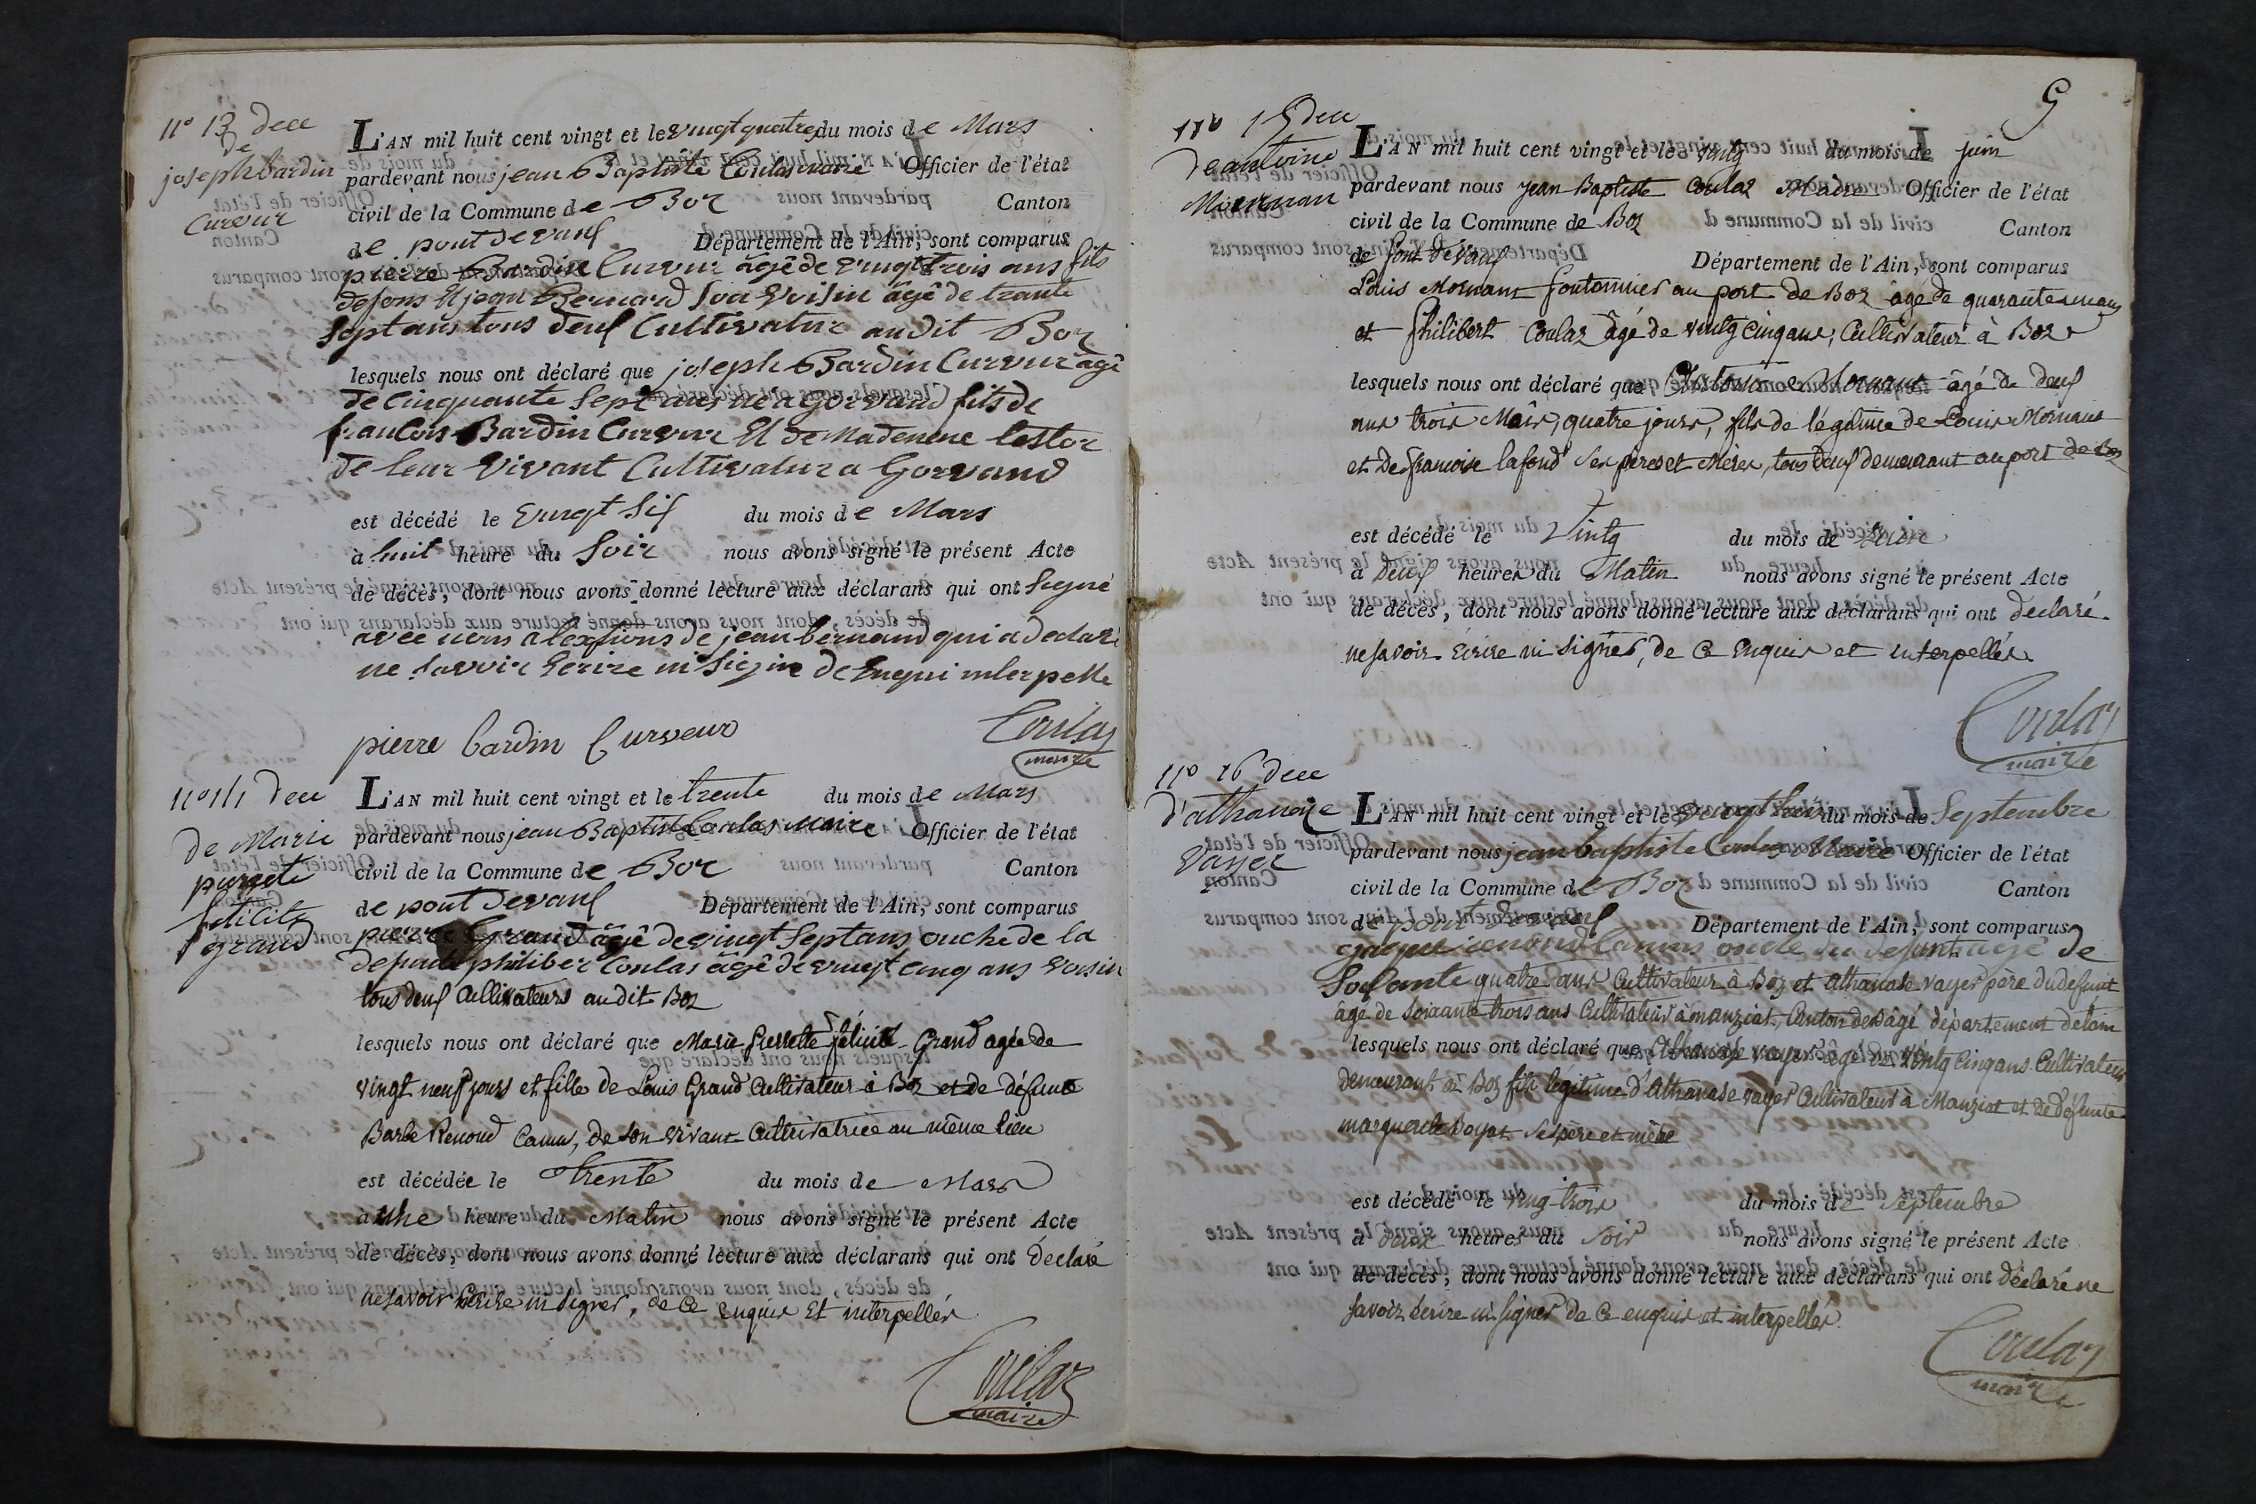 n° 13 dece
de
joseph bardin
Curveur
L'AN mil huit cent vingt et le vingt quatre du mois de Mars
pardevant nous jean Baptiste Coulas maire Officier de l'état
civil de la Commune de Boz Canton
de pont devaux Département de l'Ain, sont comparus
pierre Bardin Curveur âgé de vingt trois ans fils
defons Et jean Bernard son voisin âgé de trante
sept ans tous deux Cultivatur audit Boz
lesquels nous ont déclaré que joseph Bardin Curveur âgé
de cinquante sept ans né a Gorvand fils de
francois Bardin Curveur Et de Madenene lestor
de leur vivant Cultivatur a Gorvand
est décédé le vingt six du mois de Mars
à huit heure du Soir nous avons signé le présent Acte
de décès, dont nous avons donné lecture aux déclarans qui ont signé
avec nous a lexsions de jean bernard qui a declaré
ne savoir Ecrire ni signe de Enqui interpelle
pierre bardin Curveur
Coulas
maire
n° 14 dece
de Marie
pierrete
félicité
grand
L'AN mil huit cent vingt et le trente du mois de Mars
pardevant nous jean Baptist Coulas Maire Officier de l'état
civil de la Commune de Boz Canton
de pont devaux Département de l'Ain, sont comparus
pierre Grand âgé de vingt sept ans onche de la
defunte philiber Coulas âgé de vingt cinq ans voisin
tous deux Cultivateurs audit Boz
lesquels nous ont déclaré que Marie Pierrette félicité Grand agée de
vingt neuf jours et fille de Louis Grand Cultivateur à Boz et de défunte
Barbe Renoud Camus, de son vivant Cultivatrice au même lieu
est décédée le Trente du mois de Mars
à une heure du Matin nous avons signé le présent Acte
de décès, dont nous avons donné lecture aux déclarans qui ont déclaré
ne savoir Ecrire ni signer, de ce enquis Et interpellés
Coulaz
maire
5
n° 15 dece
de antoine
Mornan
L'AN mil huit cent vingt et le vintg du mois de juin
pardevant nous jean Baptiste Coulaz Maire Officier de l'état
civil de la Commune de Boz Canton
de Pont de Vaux Département de l'Ain, sont comparus
Louis Mornant fontonnier au port de Boz agé de quarante
et Philibert Coulaz âgé de vintg cinq ans, Cultivateur à Boz
lesquels nous ont déclaré que Antoine Mornant âgé de deux
ans trois Mois, quatre jours, fils de légitime de Louis Mornant
et De francoise lafond ses pères et Mères, tous deux demeurant au port de Boz
est décédé le Vintg du mois de Juin
à deux heures du Matin nous avons signé le présent Acte
de décès, dont nous avons donné lecture aux déclarans qui ont declaré
ne savoir Ecrire ni signer, de ce enquis et interpellés
Coulaz
maire
n° 16 dece
d'athanaze
Vayer
L'AN mil huit cent vingt et le vingt trois du mois de Septembre
pardevant nous jean baptiste Coulas Maire Officier de l'état
civil de la Commune de Boz Canton
de pont devaux Département de l'Ain, sont comparus
renoud Camus oncle du defunt agé de
Soisante quatre ans Cultivateur à Boz et Athanase vayer père du defunt
âgé de soixante trois ans Cultivateur à manziat, Canton de Bâgé département de lain
lesquels nous ont déclaré que Athanase vayer âgé de vintg cinq ans Cultivateur
demeurant à Boz fils légitime d'Athanase vayer Cultivateur à Manziat et de défunte
marguerite Boyat ses père et mère
est décédé le ving-trois du mois de Septembre
à deux heures du Soir nous avons signé le présent Acte
de décès, dont nous avons donné lecture aux déclarans qui ont déclaré ne
savoir écrire ni signer de ce enquis et interpellés
Coulaz
maire